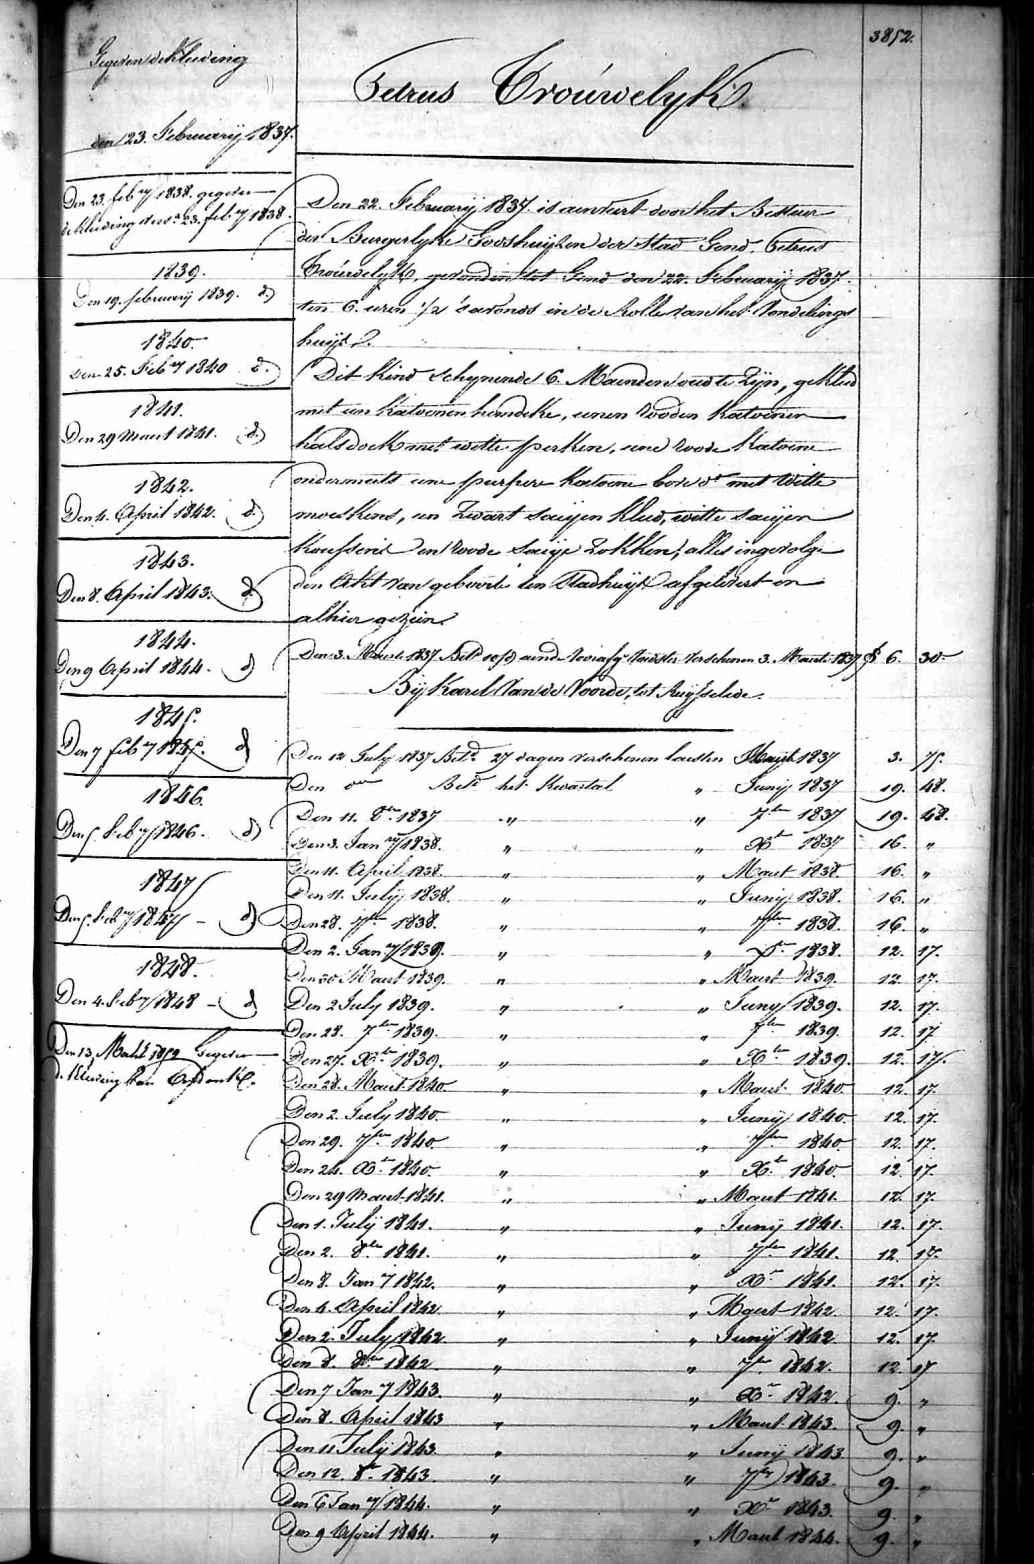 3852.
Gegeven de Kleeding
den 23. Februarij 1837.
Den 23. feb.ry 1838. gegeven
de kleeding 23. feb.ry 1838.
1839.
Den 19. februarij 1839. d)
1840.
den 25. Feb.ry 1840 d.
1841.
Den 29 Maart 1841. d)
1842.
Den 4. April 1842. d)
1843.
Den 8. April 1843. d)
1844.
Den 9 April 1844. d)
1845.
Den 7 feb.ry 1845. d)
1846.
Den 5. feb.ry 1846. d)
1847
Den 5. feb.ry 1847 - d)
1848.
Den 4. feb.ry 1848 - d)
Den 13, Gegeven
de Kleeding van
Petrus Trouwelyk.
Den 22. Februarij 1837. is aenveert door het Bestuer
der Burgerlyke Godshuijzen der Stad Gend, Petrus
Trouwelyk, gevonden tot Gend den 22. Februarij 1837.
ten 6. uren 1/2 's avonds in de Rolle van het Vondelings
huijs.
Dit Kind schynende 6. Maenden oud te zyn, gekleed
met een katoenen hemdeke, eenen rooden katoenen
halsdoek met witte perken, eene roode katoene
ondermuts eene purpere katoene met witte
moeskens, een zwart saijen kleed, witte saijen
koussens en roode saije zokken, alles ingevolge
den Akt van geboorte ten Stadhuijse afgelevert en
alhier gezien.
Den 3. Maart 1837 Bet.d verschenen 3. Maart 1837 f 6. 30.
Bij Karel Van de Voorde, tot Ruijsselede.
Den 12 July 1837 Bet.d 27 dagen verschenen laesten Maart 1837 3. 75.
Den Bet.d het Kwartael " Junij 1837 19. 48.
Den 11. 8.ber 1837 " " 7.ber 1837 19. 48.
Den 3. Jan.ry 1838. " " X.r 1837 16. "
Den 11. April 1838. " " Maart 1838. 16. "
Den 11. July 1838. " " Junij 1838. 16. "
Den 28. 7.ber 1838. " " 7.ber 1838 16. "
Den 2. Jan.ry 1839. " " X.r 1838. 12. 17.
Den 30 Maart 1839. " " Maart 1839. 12. 17.
Den 2 July 1839. " " Juny 1839. 12. 17.
Den 28. 7.ber 1839. " " 7.ber 1839. 12. 17
Den 27. X.ber 1839. " " X.ber 1839. 12. 17.
Den 28. Maart 1840. " " Maart 1840. 12. 17.
Den 2. July 1840. " " Junij 1840. 12. 17.
Den 29. 7.ber 1840. " " 7.ber 1840. 12. 17.
Den 24. X.ber 1840. " " X.ber 1840. 12. 17.
Den 29 Maart 1841. " " Maart 1841. 12. 17.
Den 1. Julij 1841. " " Junij 1841. 12. 17.
Den 2. 8.ber 1841. " " 7.ber 1841. 12. 17.
Den 8. Jan.ry 1842. " " X.r 1841. 12. 17.
Den 4. April 1842. " " Maert 1842. 12. 17.
Den 2. July 1842. " " Junij 1842 12. 17.
Den 8. 8.ber 1842 " " 7.r 1842. 12. 17
Den 7 Jan.ry 1843. " " X.r 1842. 9. "
Den 8. April 1843 " " Maart 1843. 9. "
Den 11 Julij 1843. " " Junij 1843 9. "
Den 12. 8.r 1843. " " 7.r 1843. 9. "
Den 6 Jan.ry 1844. " " X.r 1843. 9. "
Den 9 April 1844. " " Maart 1844. 9. "